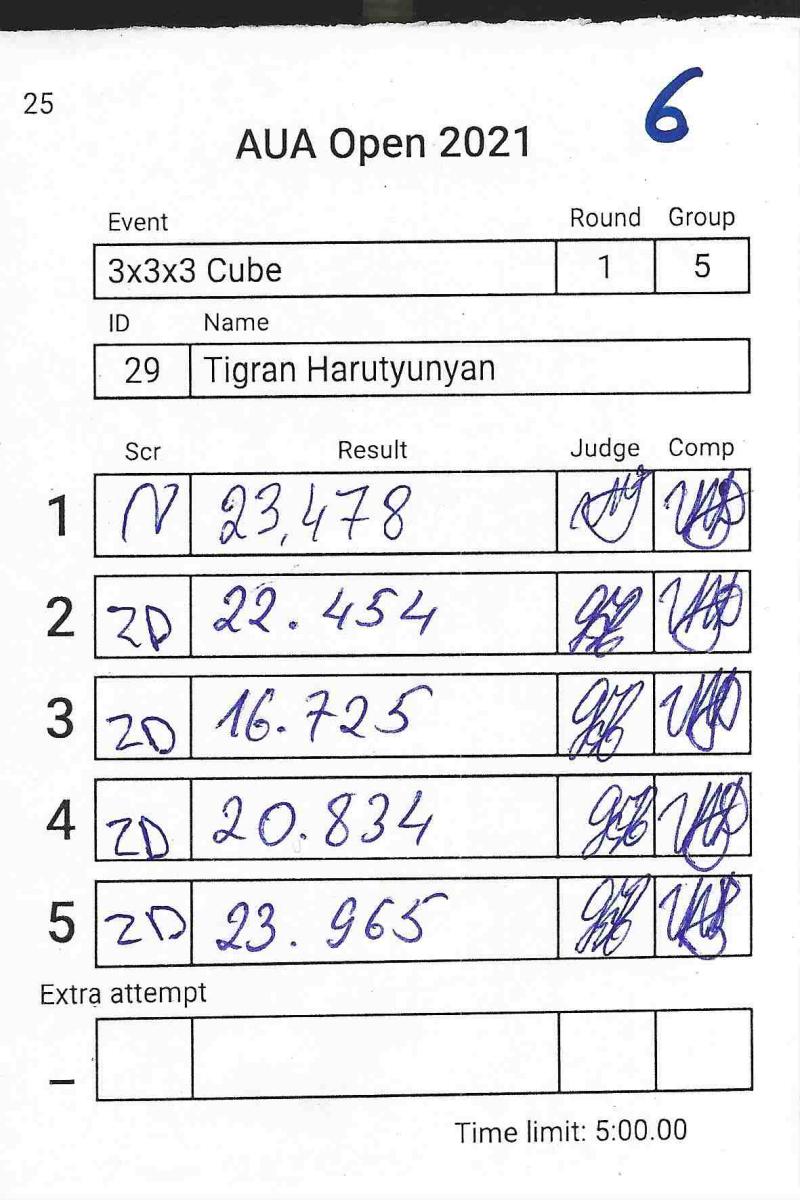 25
6
AUA Open 2021
Event Round Group
3x3x3 Cube 1 5
ID Name
29 Tigran Harutyunyan
Scr Result Judge Comp
1 N 23,478
2 ZD 22.454
3 ZD 16.725
4 ZD 20.834
5 ZD 23.965
Extra attempt
_
Time limit: 5:00.00